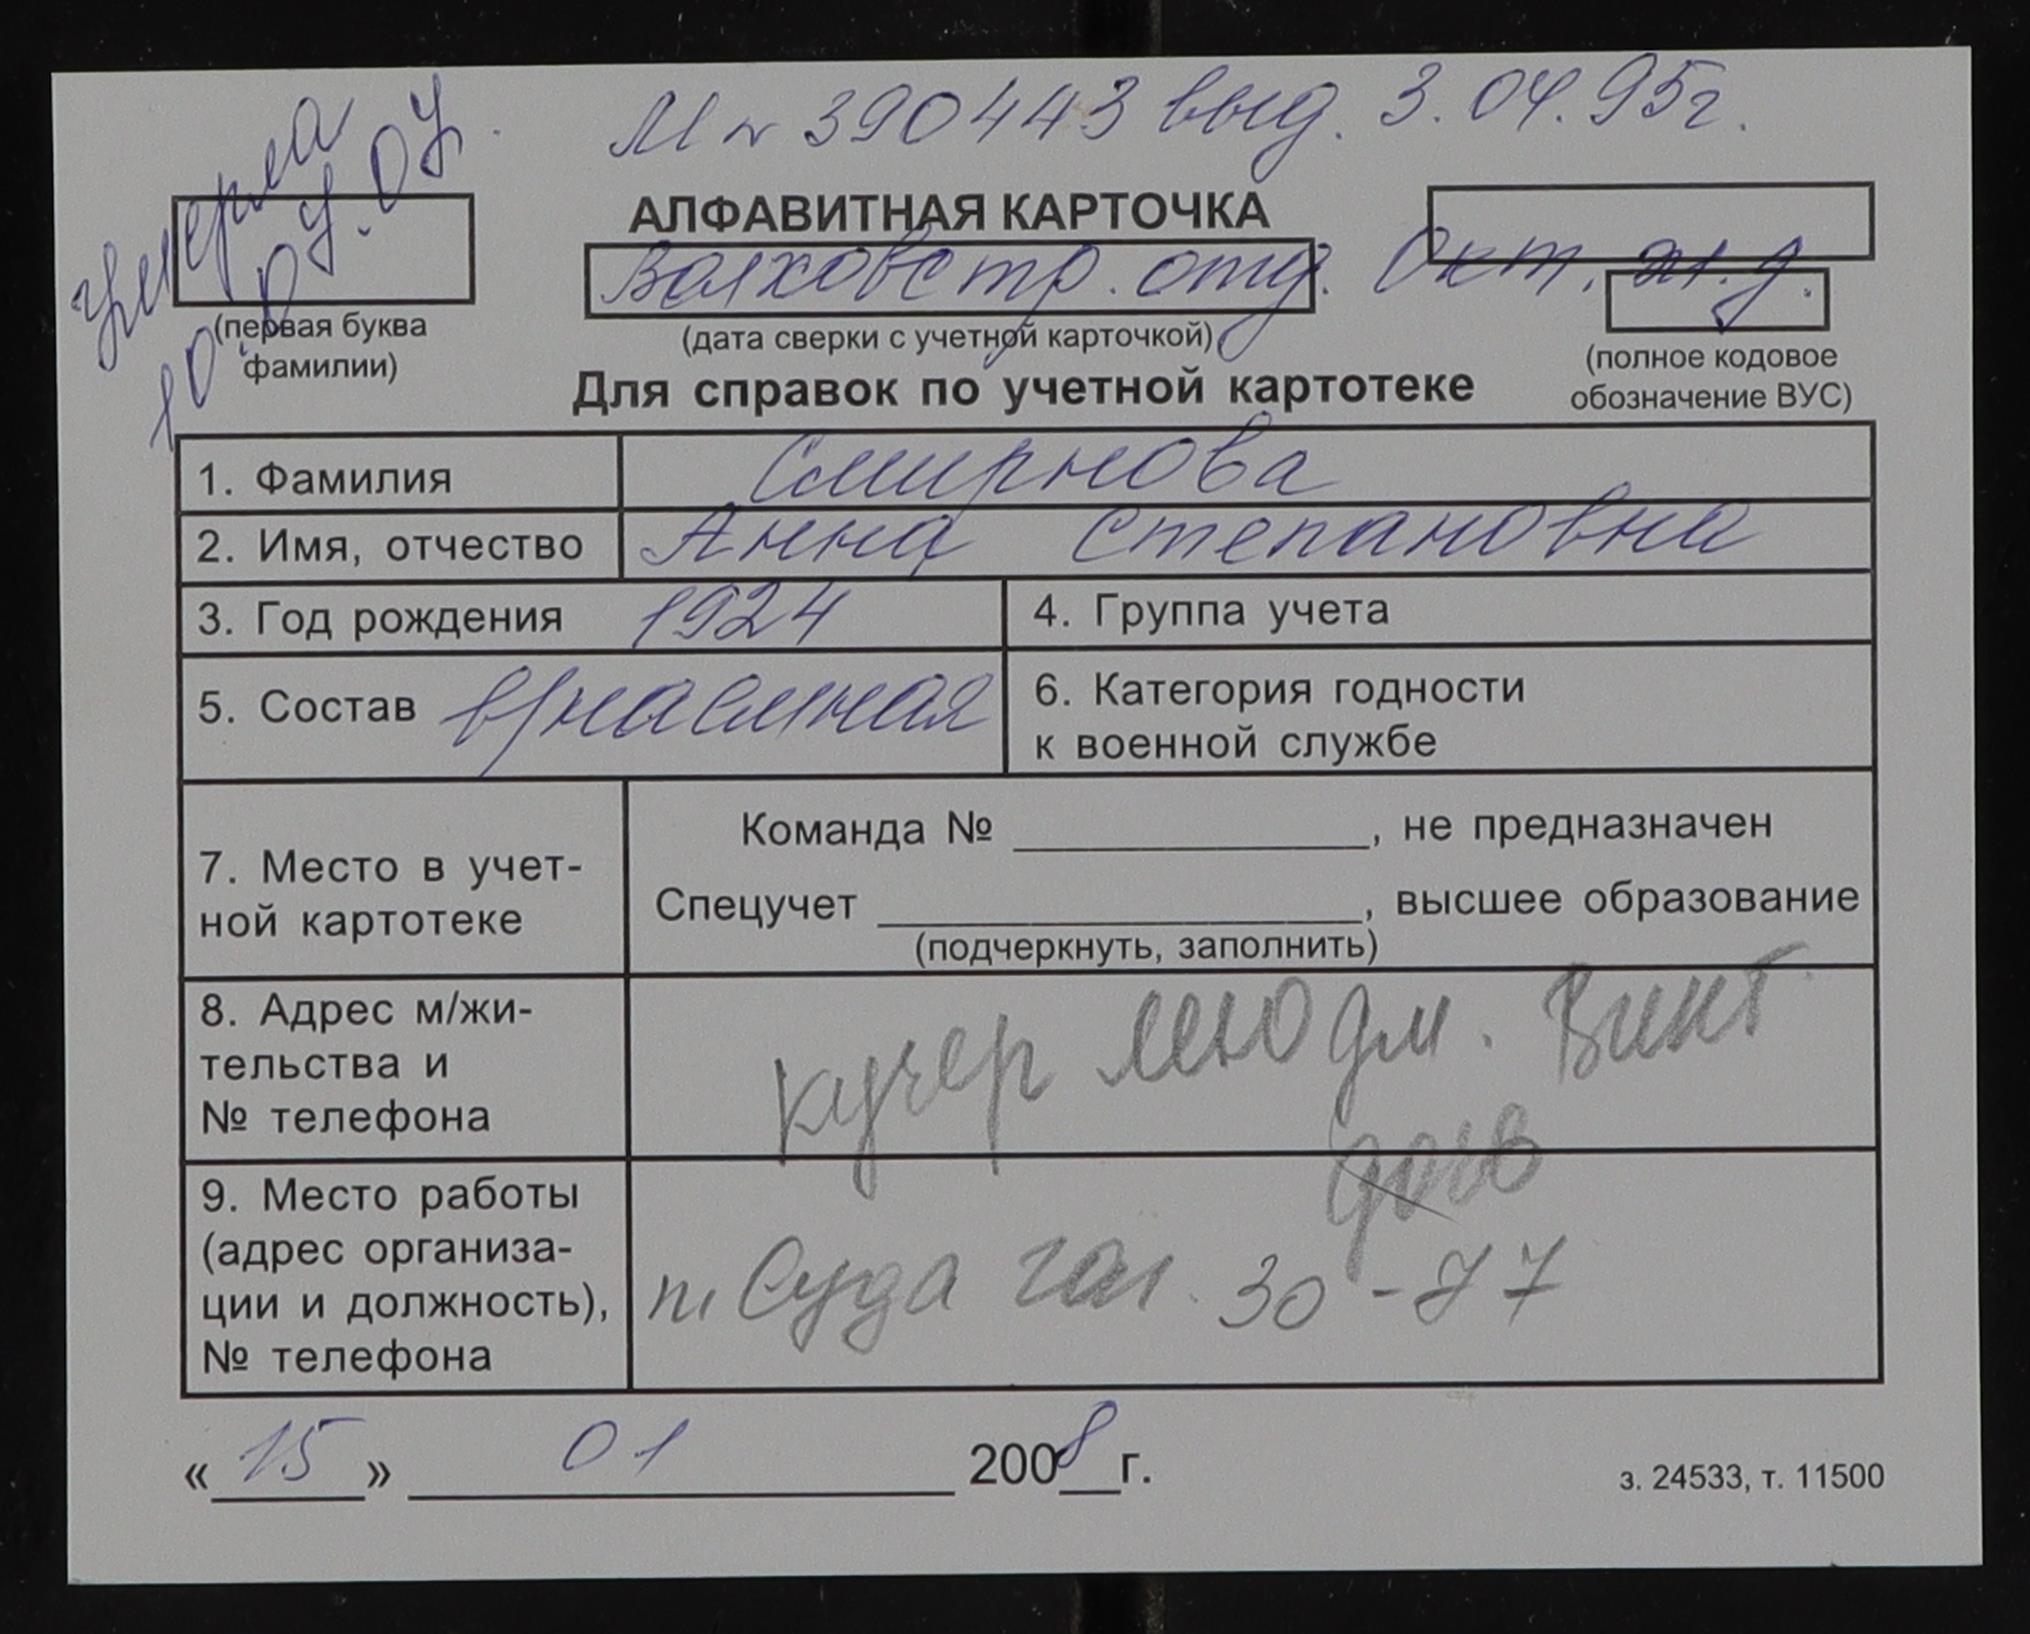 М № 390443 выд. 3.04.95г.
умерла
10.04.04.
АЛФАВИТНАЯ КАРТОЧКА
Волховстр. отд. Окт. ж.д.
(первая буква
фамилии)
(дата сверки с учетной карточкой)
(полное кодовое
обозначение ВУС)
Для справок по учетной картотеке
1. Фамилия Смирнова
2. Имя, отчество Анна Степановна
3. Год рождения 1924
4. Группа учета
5. Состав
6. Категория годности
к военной службе
7. Место в учет-
ной картотеке
Команда № ______, не предназначен
Спецучет ______, высшее образование
(подчеркнуть, заполнить)
8. Адрес м/жи-
тельства и
№ телефона
кучер Людм. Викт
дочь
9. Место работы
(адрес организа-
ции и должность),
№ телефона
п. Суда 30-77
«15» 01 2008 г.
з. 24533, т. 11500